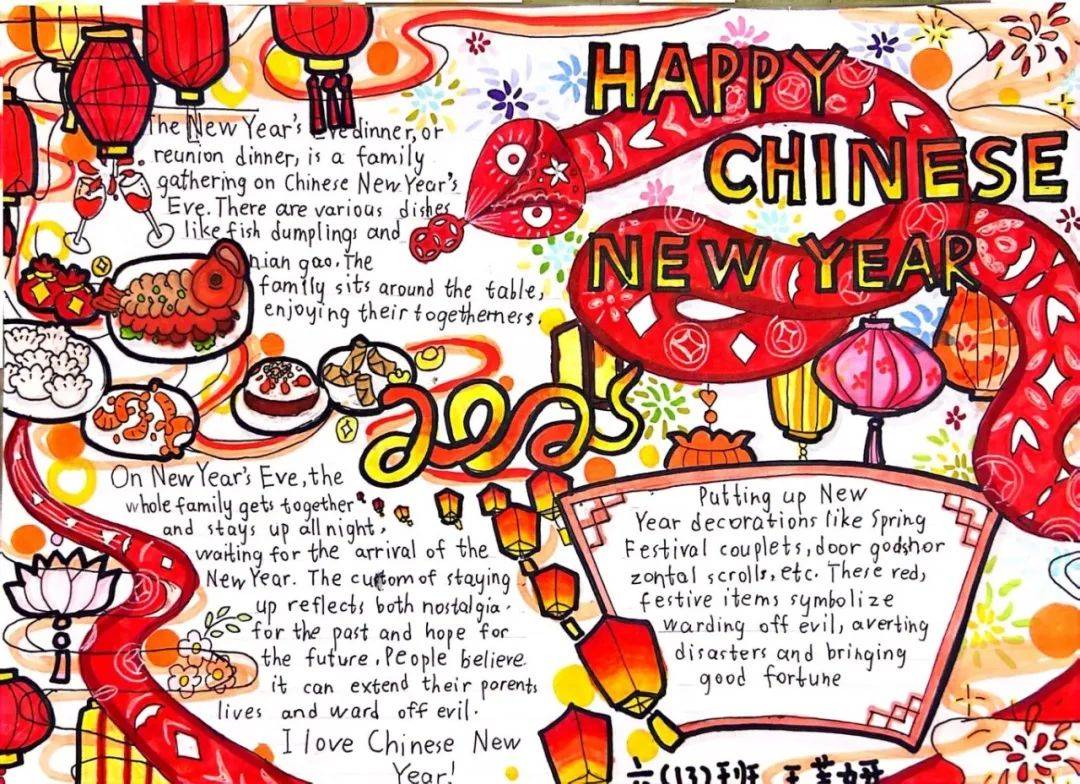 HAPPY
CHINESE
NEW YEAR
The New Year's Eve dinner, or
reunion dinner, is a family
gathering on Chinese New Year's
Eve. There are various dishes
like fish dumplings and
nian gao. The
family sits around the table,
enjoying their togetherness.
2025
On New Year's Eve, the
whole family gets together
and stays up all night,
waiting for the arrival of the
New Year. The custom of staying
up reflects both nostalgia
for the past and hope for
the future. People believe
it can extend their parents
lives and ward off evil.
I love Chinese New
Year!
Putting up New
Year decorations like Spring
Festival couplets, door godshor
zontal scrolls, etc. These red,
festive items symbolize
warding off evil, averting
disasters and bringing
good fortune
六(13)班 王